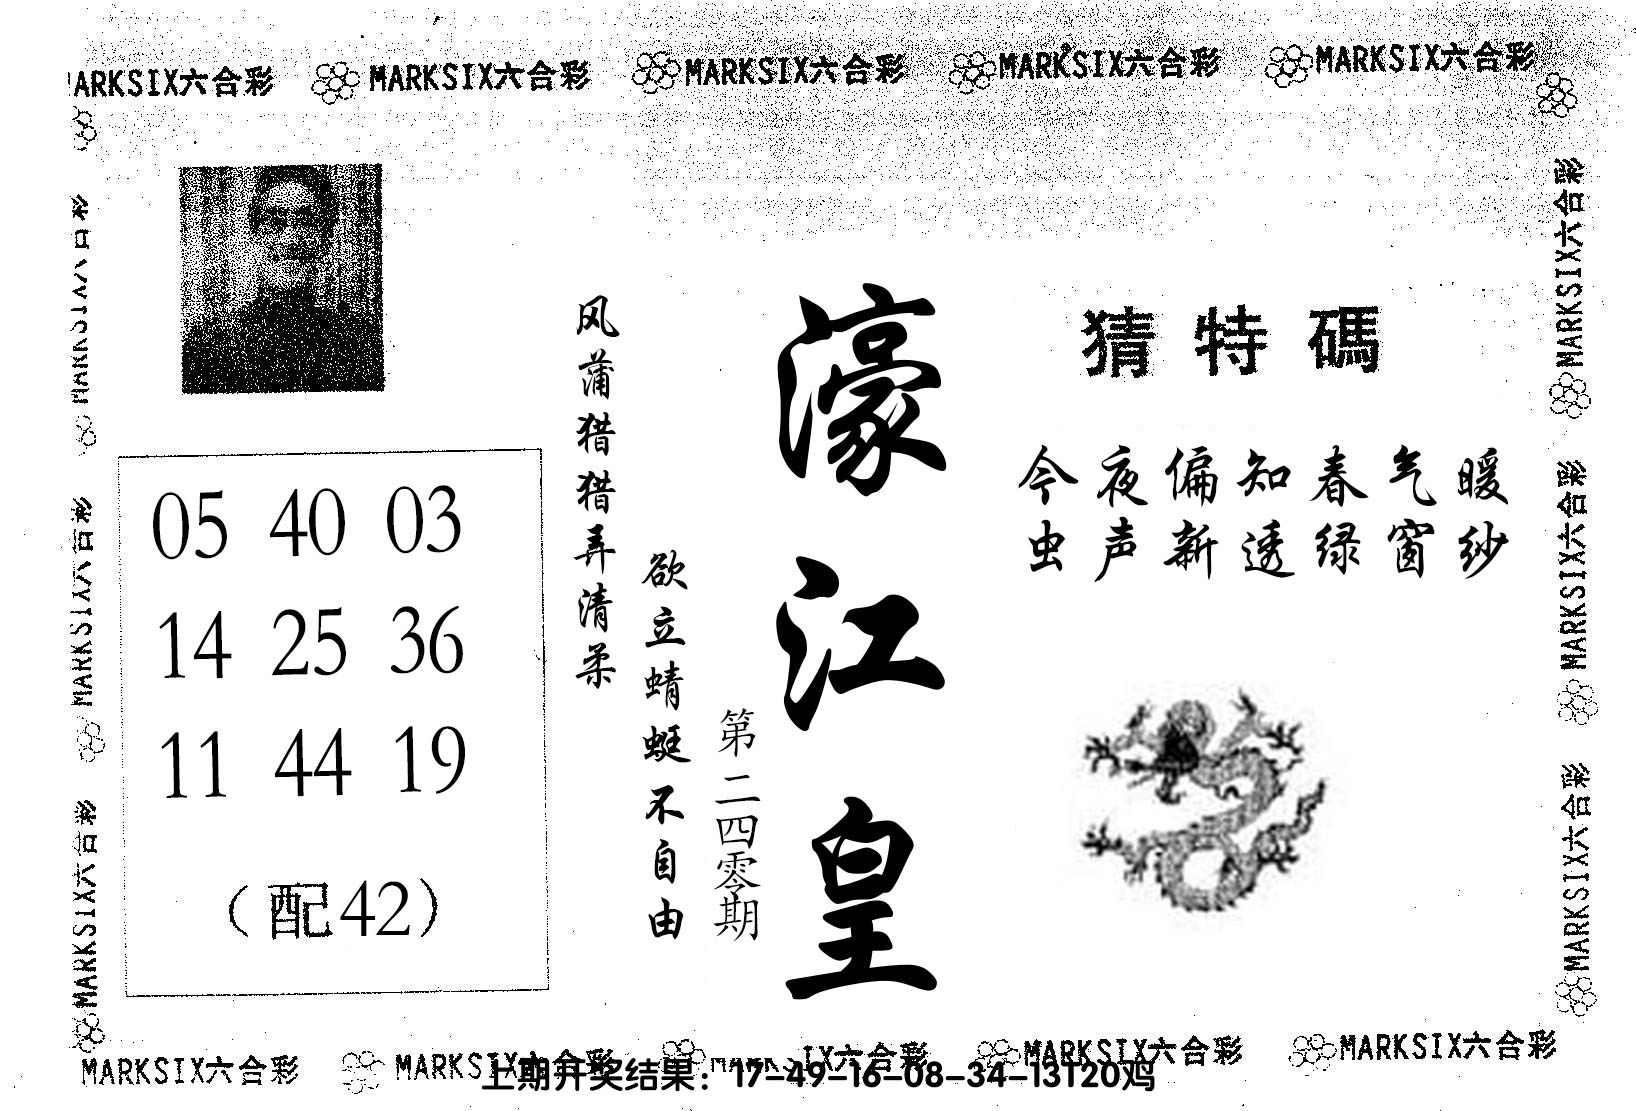 MARKSIX六合彩 MARKSIX六合彩 MARKSIX六合彩 MARKSIX六合彩 MARKSIX六合彩
猜特碼
今夜偏知春气暖
虫声新透绿窗纱
濠江皇
第二四零期
风蒲猎猎弄清柔
欲立蜻蜓不自由
05 40 03
14 25 36
11 44 19
（配42）
MARKSIX六合彩
MARKSIX六合彩
MARKSIX六合彩
MARKSIX六合彩
MARKSIX六合彩
MARKSIX六合彩
MARKSIX六合彩 MARKSIX六合彩 IX六合彩 MARKSIX六合彩 MARKSIX六合彩
上期开奖结果：17-49-16-08-34-13T20鸡